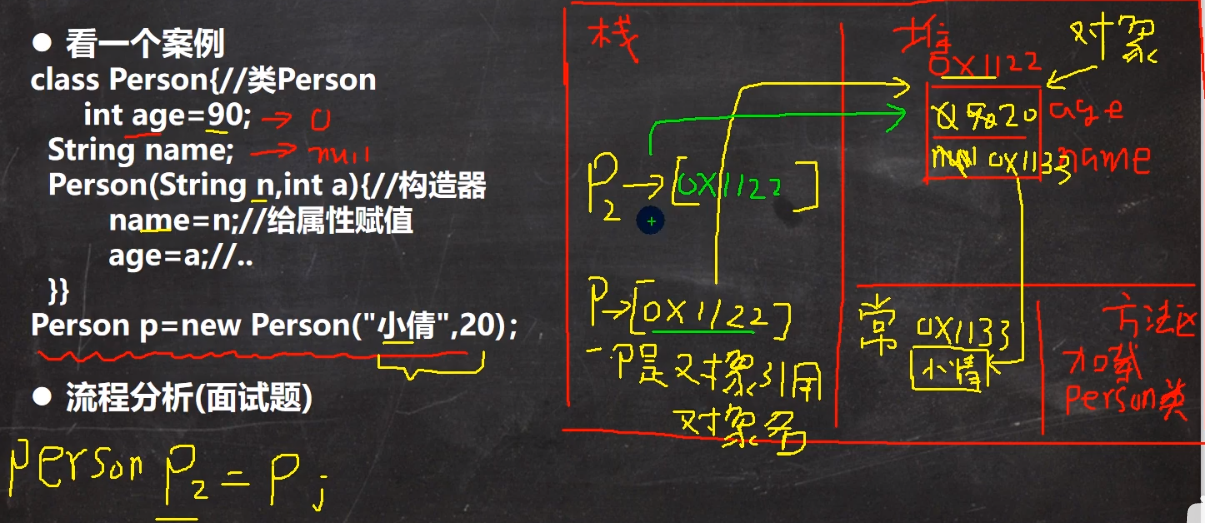 ● 看一个案例
class Person{//类Person
int age=90; → 0
String name; → null
Person(String n,int a){//构造器
name=n;//给属性赋值
age=a;//..
}}
Person p=new Person("小倩",20);
● 流程分析(面试题)
person P2 = P;
栈
P2→[0X1122]
P→[0X1122]
P是对象引用
对象名
堆
对象
0X1122
90 20 age
null 0X1133 name
常
0X1133
小倩
方法区
加载
person类